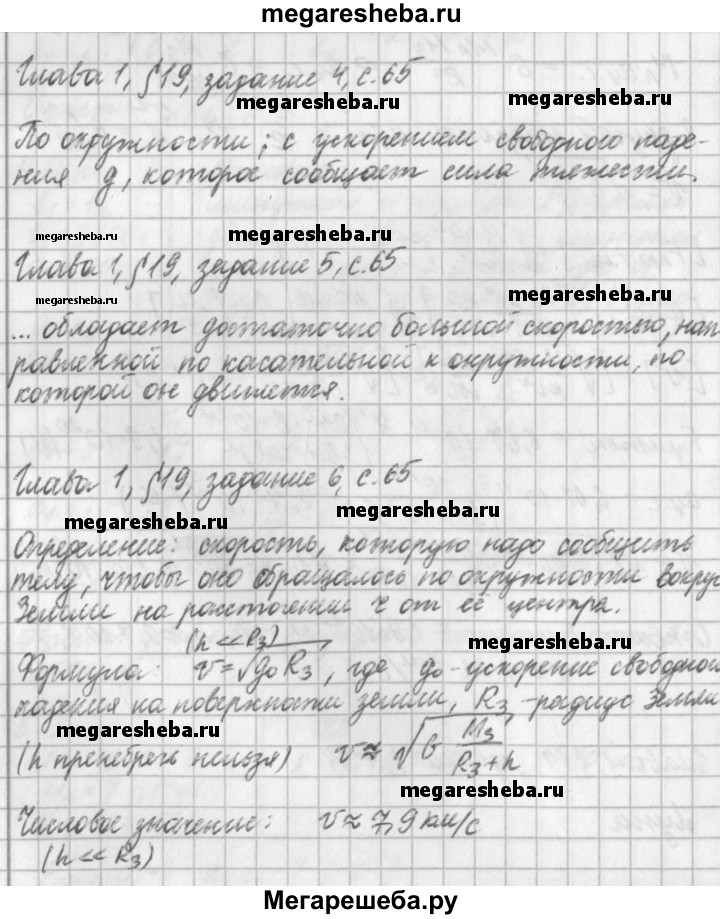 megaresheba.ru
Глава 1, §19, задание 4, с. 65
megaresheba.ru
megaresheba.ru
По окружности; с ускорением свободного паде-
ния g, которое сообщает сила тяжести.
megaresheba.ru
megaresheba.ru
Глава 1, §19, задание 5, с. 65
megaresheba.ru
megaresheba.ru
... обладает достаточно большой скоростью, нап-
равленной по касательной к окружности, по
которой он движется.
Глава 1, §19, задание 6, с. 65
megaresheba.ru
megaresheba.ru
Определение: скорость, которую надо сообщить
телу, чтобы оно обращалось по окружности вокруг
Земли на расстоянии r от её центра.
(h << Rз)
megaresheba.ru
Формула: v = √g₀Rз, где g₀ - ускорение свободного
падения на поверхности земли, Rз - радиус Земли
megaresheba.ru
(h пренебречь нельзя) v ≈ √G Mз/(Rз + h)
megaresheba.ru
Числовое значение: v ≈ 7,9 км/с
(h << Rз)
Мегарешеба.ру